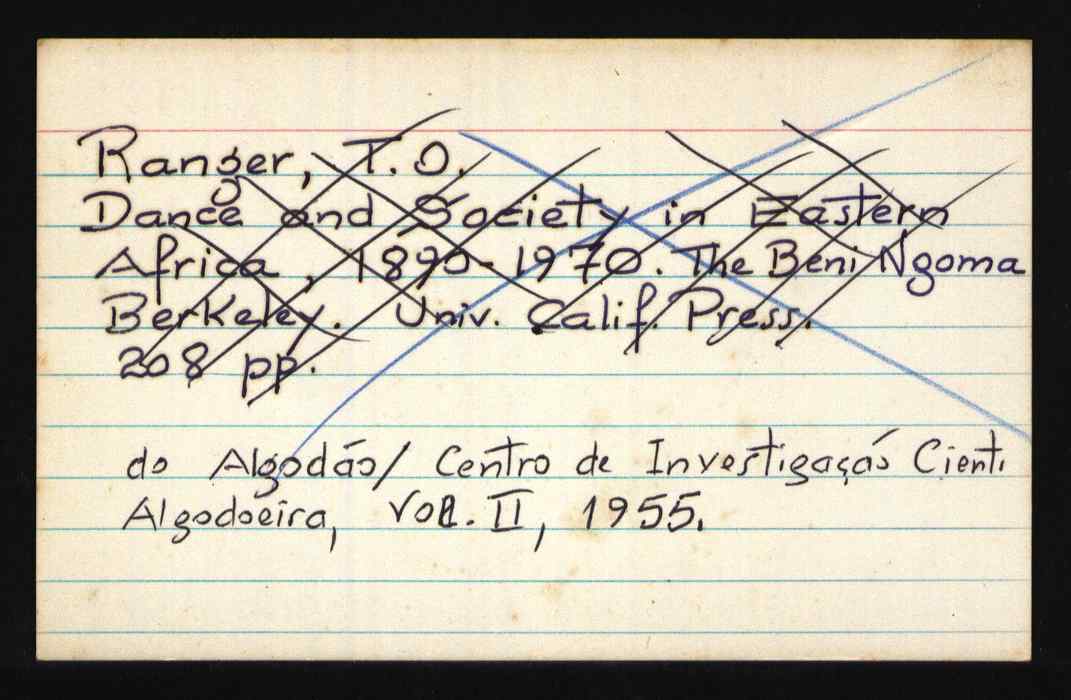 Ranger, T.O.
Dance and Society in Eastern
Africa, 1890-1970. The Beni Ngoma
Berkeley. Univ. Calif. Press.
208 pp.
do Algodão/ Centro de Investigaçaó Cienti
Algodoeira, Vol. II, 1955.